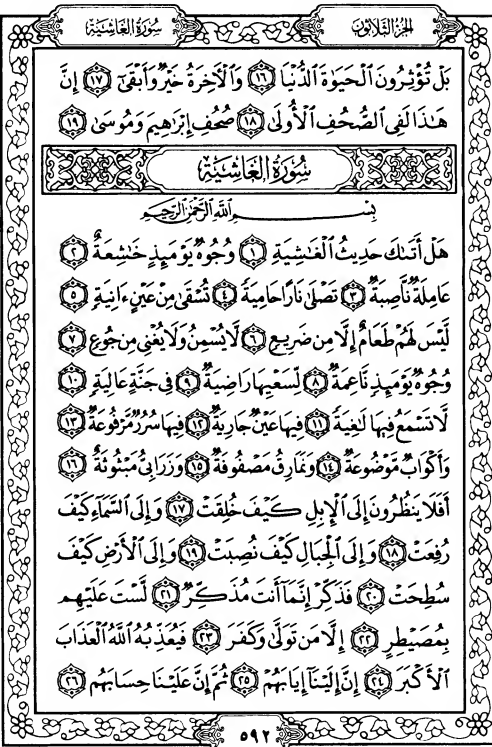 سُورَةُ الغَاشِيَةِ الجُزْءُ الثَّلَاثُونَ
بَلْ تُؤْثِرُونَ ٱلْحَيَوٰةَ ٱلدُّنْيَا ١٦ وَٱلْأَخِرَةُ خَيْرٌ وَأَبْقَىٰٓ ١٧ إِنَّ
هَـٰذَا لَفِى ٱلصُّحُفِ ٱلْأُولَىٰ ١٨ صُحُفِ إِبْرَٰهِيمَ وَمُوسَىٰ ١٩
سُورَةُ الغَاشِيَةِ
بِسْمِ ٱللَّهِ ٱلرَّحْمَـٰنِ ٱلرَّحِيمِ
هَلْ أَتَىٰكَ حَدِيثُ ٱلْغَـٰشِيَةِ ١ وُجُوهٌ يَوْمَئِذٍ خَـٰشِعَةٌ ٢
عَامِلَةٌ نَّاصِبَةٌ ٣ تَصْلَىٰ نَارًا حَامِيَةً ٤ تُسْقَىٰ مِنْ عَيْنٍ ءَانِيَةٍ ٥
لَّيْسَ لَهُمْ طَعَامٌ إِلَّا مِن ضَرِيعٍ ٦ لَّا يُسْمِنُ وَلَا يُغْنِى مِن جُوعٍ ٧
وُجُوهٌ يَوْمَئِذٍ نَّاعِمَةٌ ٨ لِّسَعْيِهَا رَاضِيَةٌ ٩ فِى جَنَّةٍ عَالِيَةٍ ١٠
لَّا تَسْمَعُ فِيهَا لَـٰغِيَةً ١١ فِيهَا عَيْنٌ جَارِيَةٌ ١٢ فِيهَا سُرُرٌ مَّرْفُوعَةٌ ١٣
وَأَكْوَابٌ مَّوْضُوعَةٌ ١٤ وَنَمَارِقُ مَصْفُوفَةٌ ١٥ وَزَرَابِىُّ مَبْثُوثَةٌ ١٦
أَفَلَا يَنظُرُونَ إِلَى ٱلْإِبِلِ كَيْفَ خُلِقَتْ ١٧ وَإِلَى ٱلسَّمَآءِ كَيْفَ
رُفِعَتْ ١٨ وَإِلَى ٱلْجِبَالِ كَيْفَ نُصِبَتْ ١٩ وَإِلَى ٱلْأَرْضِ كَيْفَ
سُطِحَتْ ٢٠ فَذَكِّرْ إِنَّمَآ أَنتَ مُذَكِّرٌ ٢١ لَّسْتَ عَلَيْهِم
بِمُصَيْطِرٍ ٢٢ إِلَّا مَن تَوَلَّىٰ وَكَفَرَ ٢٣ فَيُعَذِّبُهُ ٱللَّهُ ٱلْعَذَابَ
ٱلْأَكْبَرَ ٢٤ إِنَّ إِلَيْنَآ إِيَابَهُمْ ٢٥ ثُمَّ إِنَّ عَلَيْنَا حِسَابَهُم ٢٦
٥٩٢